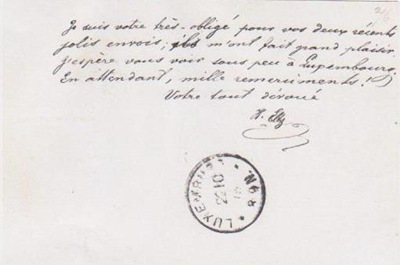 Je suis votre très-obligé pour vos deux récents
jolis envois; ils m'ont fait grand plaisir.
J'espère vous voir sous peu à Luxembourg.
En attendant, mille remercîments!
Votre tout dévoué